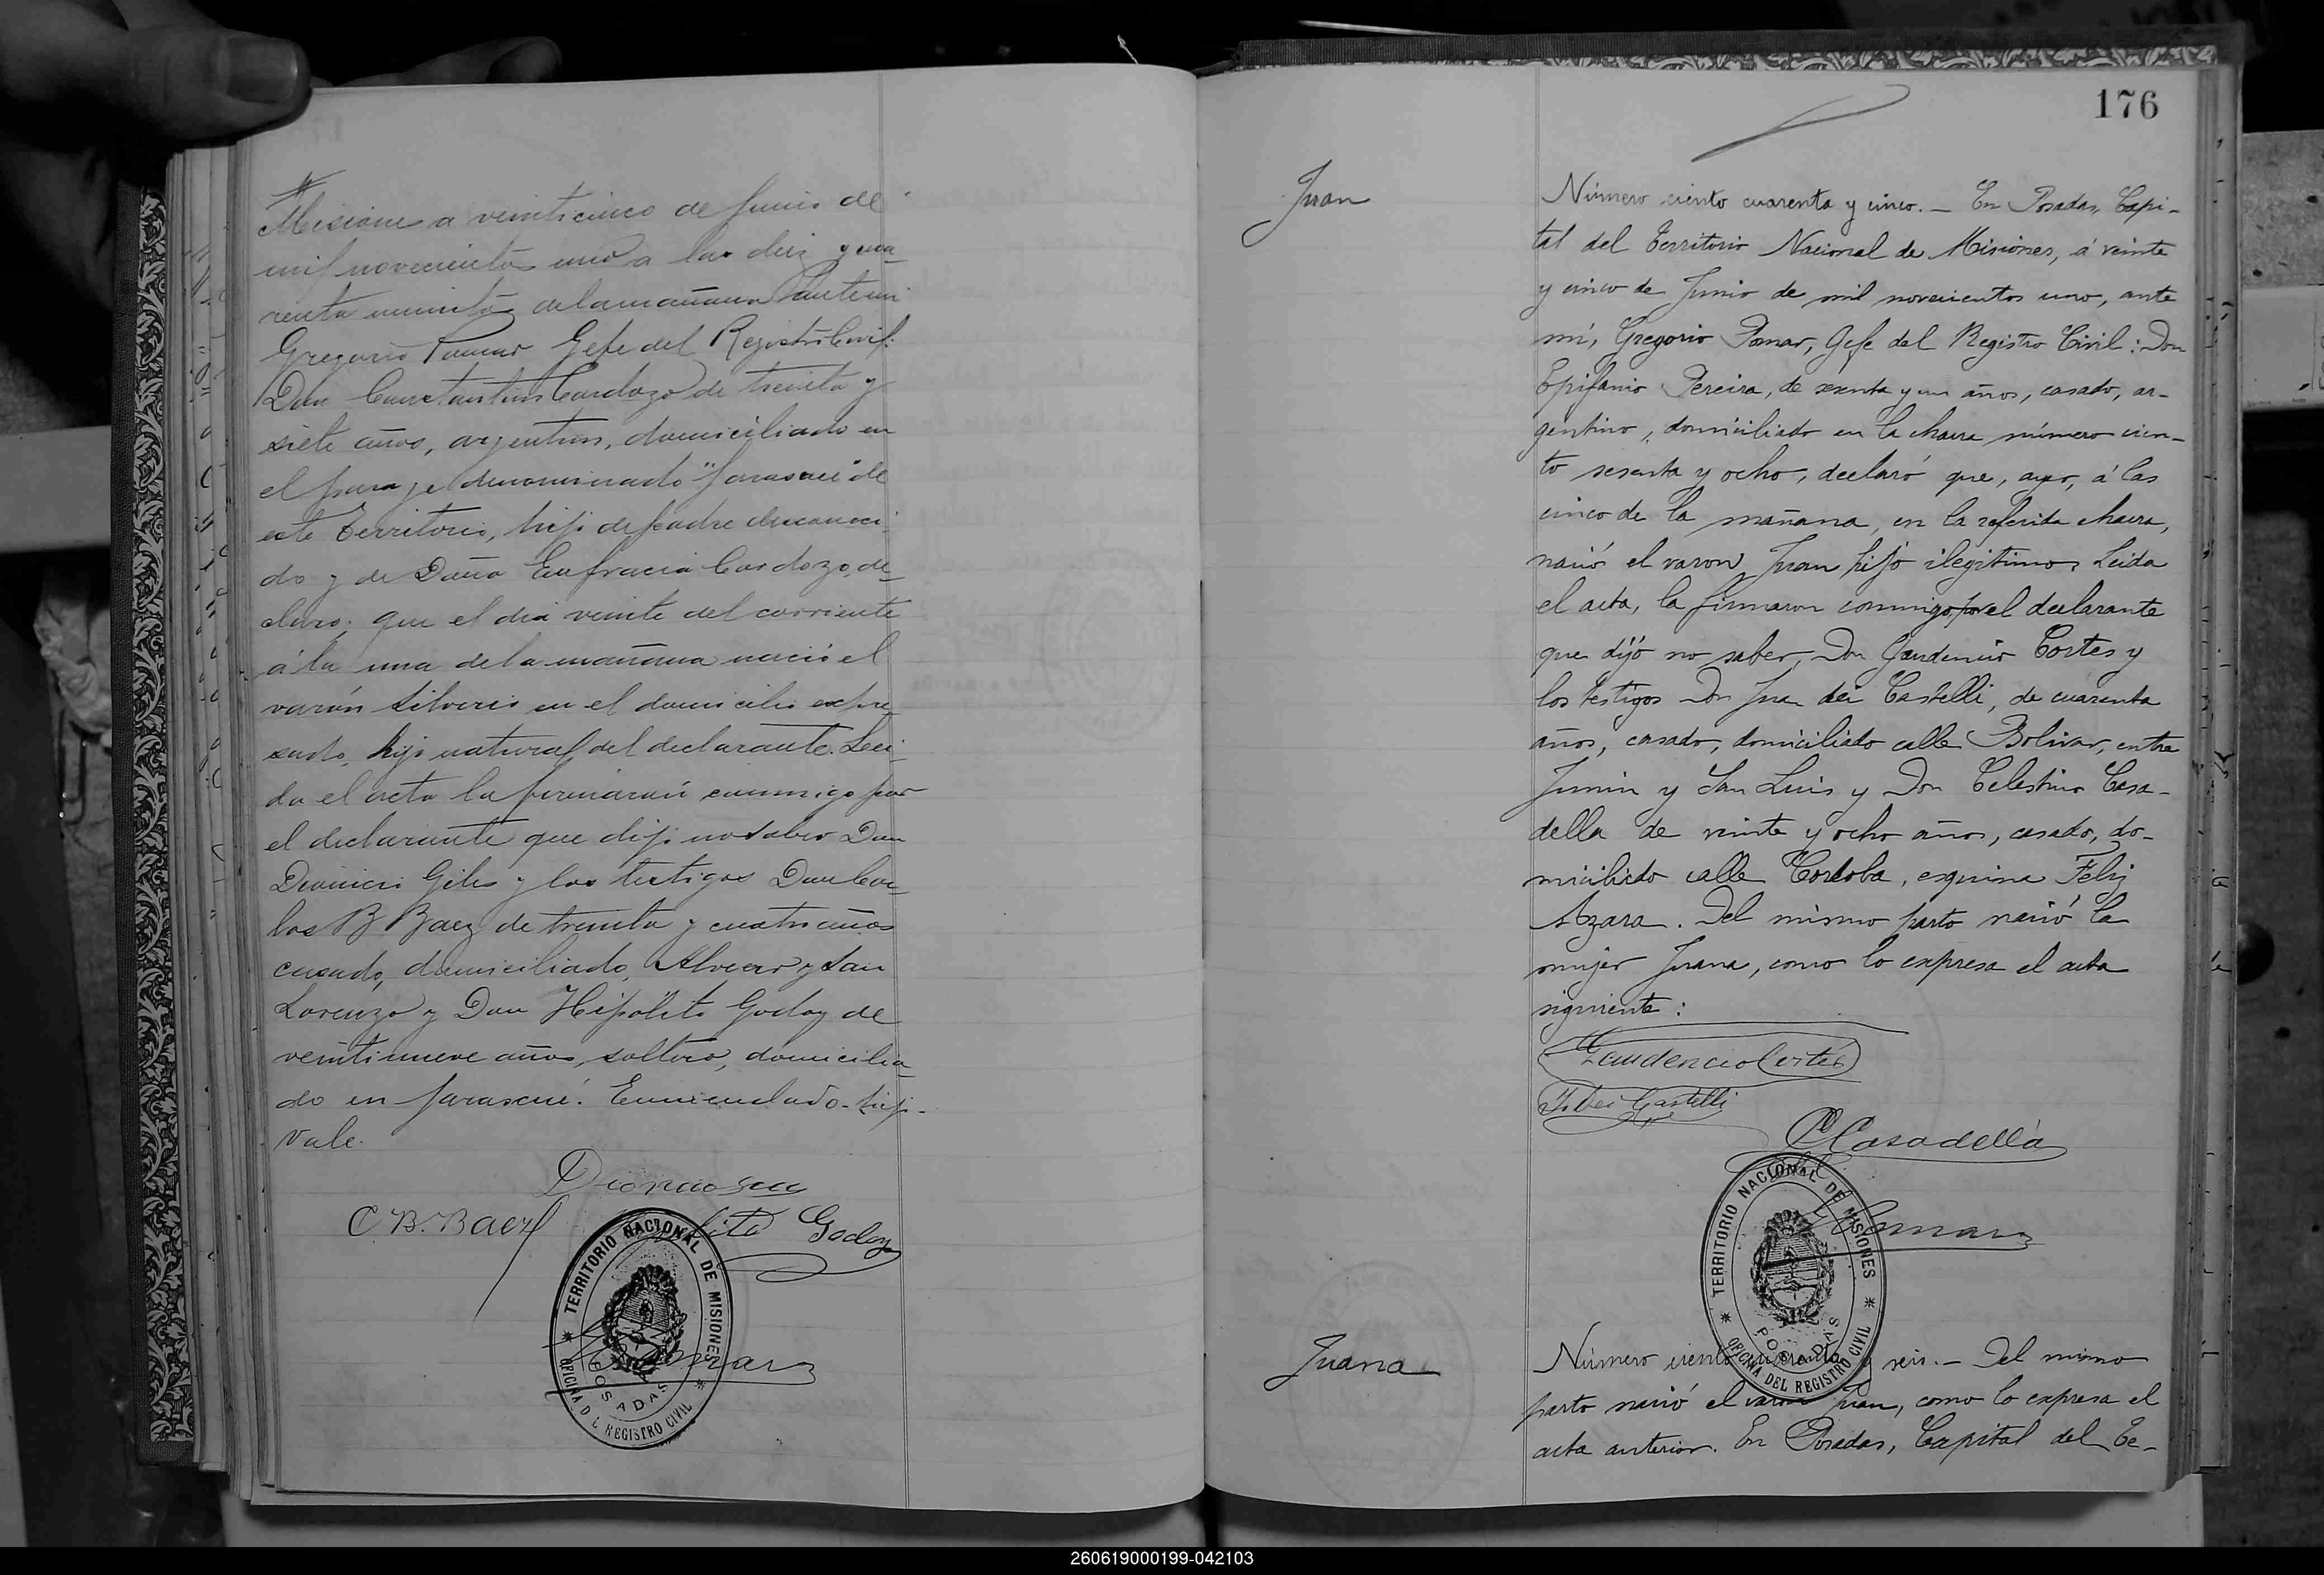 Misiones a veinticinco de Junio de
mil novecientos uno a las diez y cua-
renta minutos de la mañana ante mi
Gregorio Pomar Gefe del Registro Civil:
Don Constantino Cardozo de treinta y
siete años, argentino, domiciliado en
el paraje denominado "Jarascué" de
este Territorio, hijo de padre desconoci-
do y de Doña Eufracia Cardozo, de-
claro; que el dia veinte del corriente
á la una de la mañana nació el
varón Silverio en el domicilio expre-
sado, hijo natural del declarante. Lei-
da el acta la firmarón conmigo por
el declarante que dijo no saber Don
Dionicio Giles y los testigos Don Car-
los B Baez de treinta y cuatro años
casado, domiciliado, Alvear y San
Lorenzo y Don Hipólito Godoy de
veintinueve años, soltero, domicilia-
do en Jarascué. Enmendado - hijo -
Vale.
C. B. Baez
Godoy
TERRITORIO NACIONAL DE MISIONES
POSADAS
OFICINA D L REGISTRO CIVIL
176
Juan
Número ciento cuarenta y cinco. — En Posadas, Capi-
tal del Territorio Nacional de Misiones, á veinte
y cinco de Junio de mil novecientos uno, ante
mí, Gregorio Pomar, Gefe del Registro Civil: Don
Epifanio Pereira, de sesenta y un años, casado, ar-
gentino, domiciliado en la chacra número cien-
to sesenta y ocho, declaró que, ayer, á las
cinco de la mañana, en la referida chacra,
nació el varon Juan hijo ilegitimo. Leida
el acta, la firmaron conmigo, por el declarante
que dijo no saber, Don Gaudencio Cortes y
los testigos Don Juan dei Castelli, de cuarenta
años, casado, domiciliado calle Bolivar, entre
Junin y San Luis y Don Celestino Casa-
della de veinte y ocho años, casado, do-
miciliado calle Cordoba, esquina Feliz
Azara. Del mismo parto nació la
mujer Juana, como lo expresa el acta
siguiente:
Gaudencio Cortés
J. dei Castelli
C Casadella
GPomar
TERRITORIO NACIONAL DE MISIONES
POSADAS
OFICINA DEL REGISTRO CIVIL
Juana
Número ciento cuarenta y seis. — Del mismo
parto nació el varon Juan, como lo expresa el
acta anterior. En Posadas, Capital del Te-
260619000199-042103